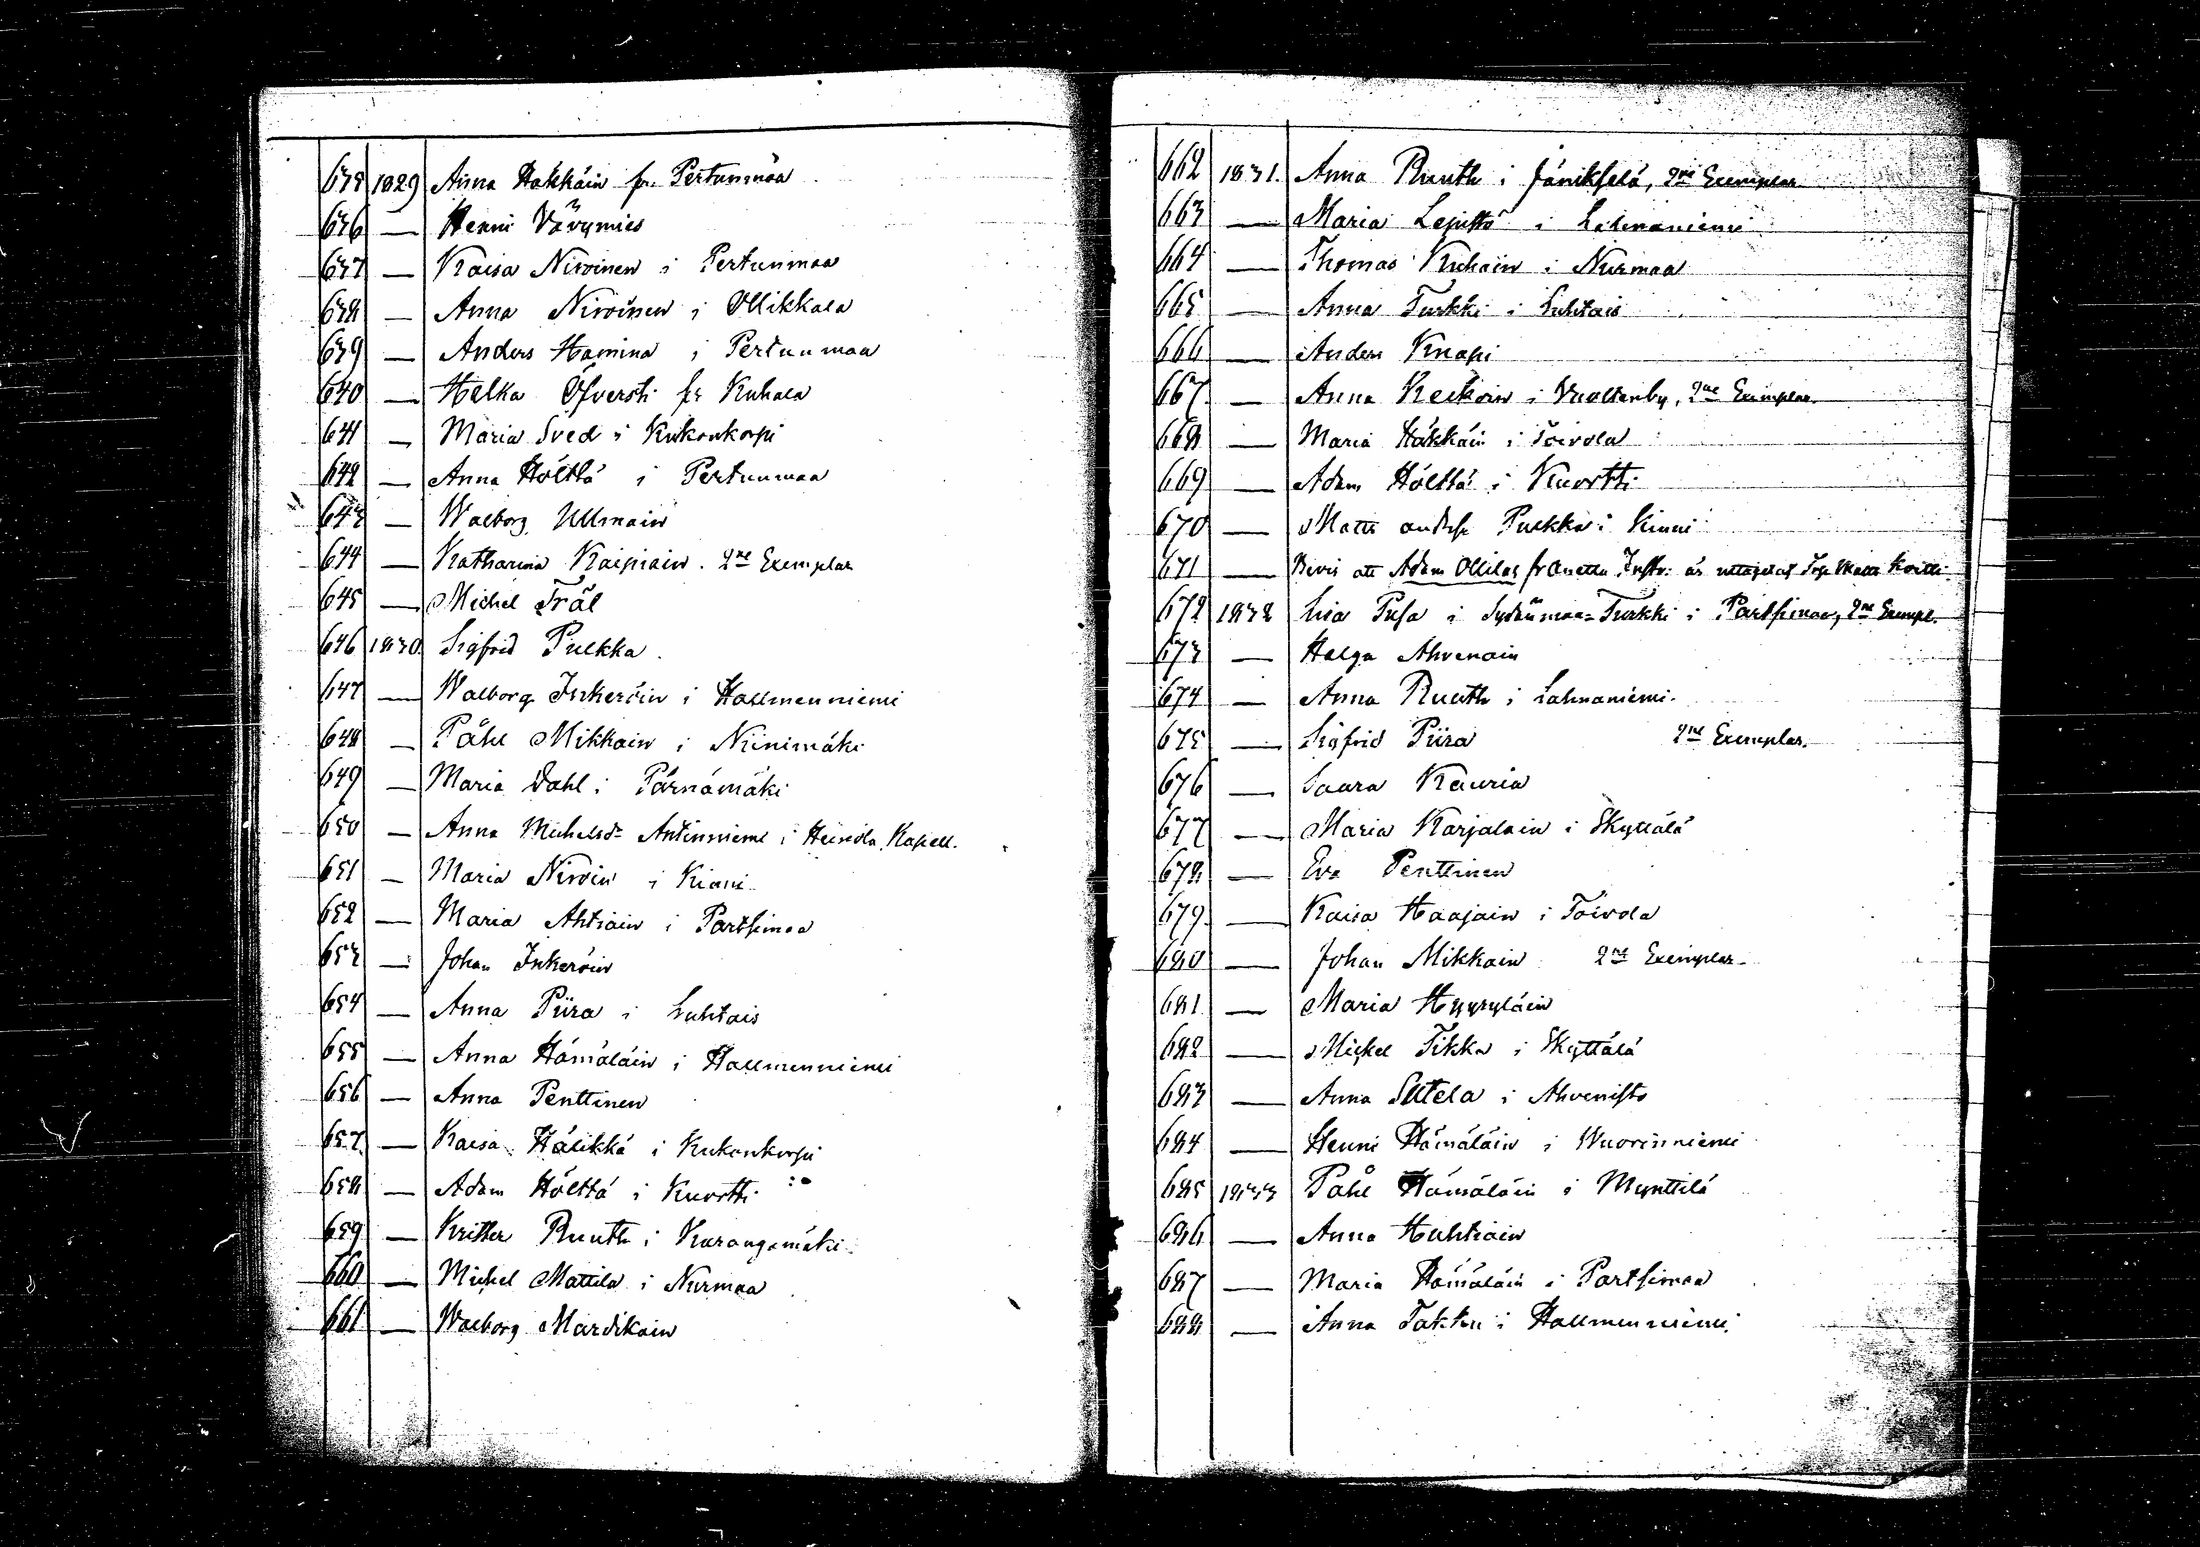 635 1829 Anna Hakkäin fr. Pertunmaa
636 — Henni Värymies
637 — Kaisa Nironen i Pertunmaa
638 — Anna Niroinen i Ollikkala
639 — Anders Hamina i Pertunmaa
640 — Helka Öfversti fr Kuhala
641 — Maria Sved i Kukonkorpi
642 — Anna Hölttä i Pertunmaa
643 — Walborg Ullmain
644 — Katharina Kaipiain. 2ne Exemplar
645 — Michel Träl
646 1830 Sigfrid Pulkka
647 — Walborg Inkeröin i Hallmenniemi
648 — Påhl Mikkain i Niinimäki
649 — Maria Dahl i Pärnämäki
650 — Anna Michelsdr Antinniemi i Heinola Kapell.
651 — Maria Niroin i Kinni
652 — Maria Ahtiain i Partsimaa
653 — Johan Inkeröin
654 — Anna Piira i Luhtais
655 — Anna Hämäläin i Hallmenniemi
656 — Anna Penttinen
657 — Kaisa Hälikkä i Kukonkorpi
658 — Adam Hölttä i Kuortti
659 — Krister Ruuth i Karangamäki
660 — Michel Mattila i Nurmaa
661 — Walborg Mardikain
662 1831. Anna Ruuth i Jänikselä, 2ne Exemplar
663 — Maria Lepistö i Lahnaniemi
664 — Thomas Kuhain i Nurmaa
665 — Anna Turkki i Luhtais
666 — Anders Knapi
667. — Anna Keckoin i Vuoltenby, 2ne Exemplar.
668 — Maria Häkkäin i Toivola
669 — Adam Hölttä i Kuortti
670 — Matts Pulkka i Kinni
671 — Bevis att Adam Ollilas fr är uttaget af Matts
672 1832 Lisa Pusa i Sydänmaa=Turkki i Partsimaa, 2ne Exempl.
673 — Helga Ahvenain
674 — Anna Ruuth i Lahnaniemi.
675 — Sigfrid Piira 2ne Exemplar.
676 — Saara Kauria
677 — Maria Karjalain i Skyttälä
678 — Eva Penttinen
679. — Kaisa Haajain i Toivola
680 — Johan Mikkain 2ne Exemplar
681 — Maria Hyyryläin
682 — Michel Tikka i Skyttälä
683 — Anna Sutela i Ahvenisto
684 — Henni Hämäläin i Wuorinniemi
685 1833 Påhl Hämäläin i Mynttilä
686 — Anna Huhtiain
687 — Maria Hämäläin i Partsimaa
688 — Anna Takku i Hallmenniemi